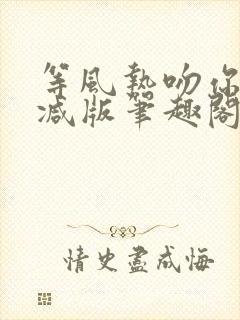 等風熱吻你
减版筆趣閣
情史盡成悔